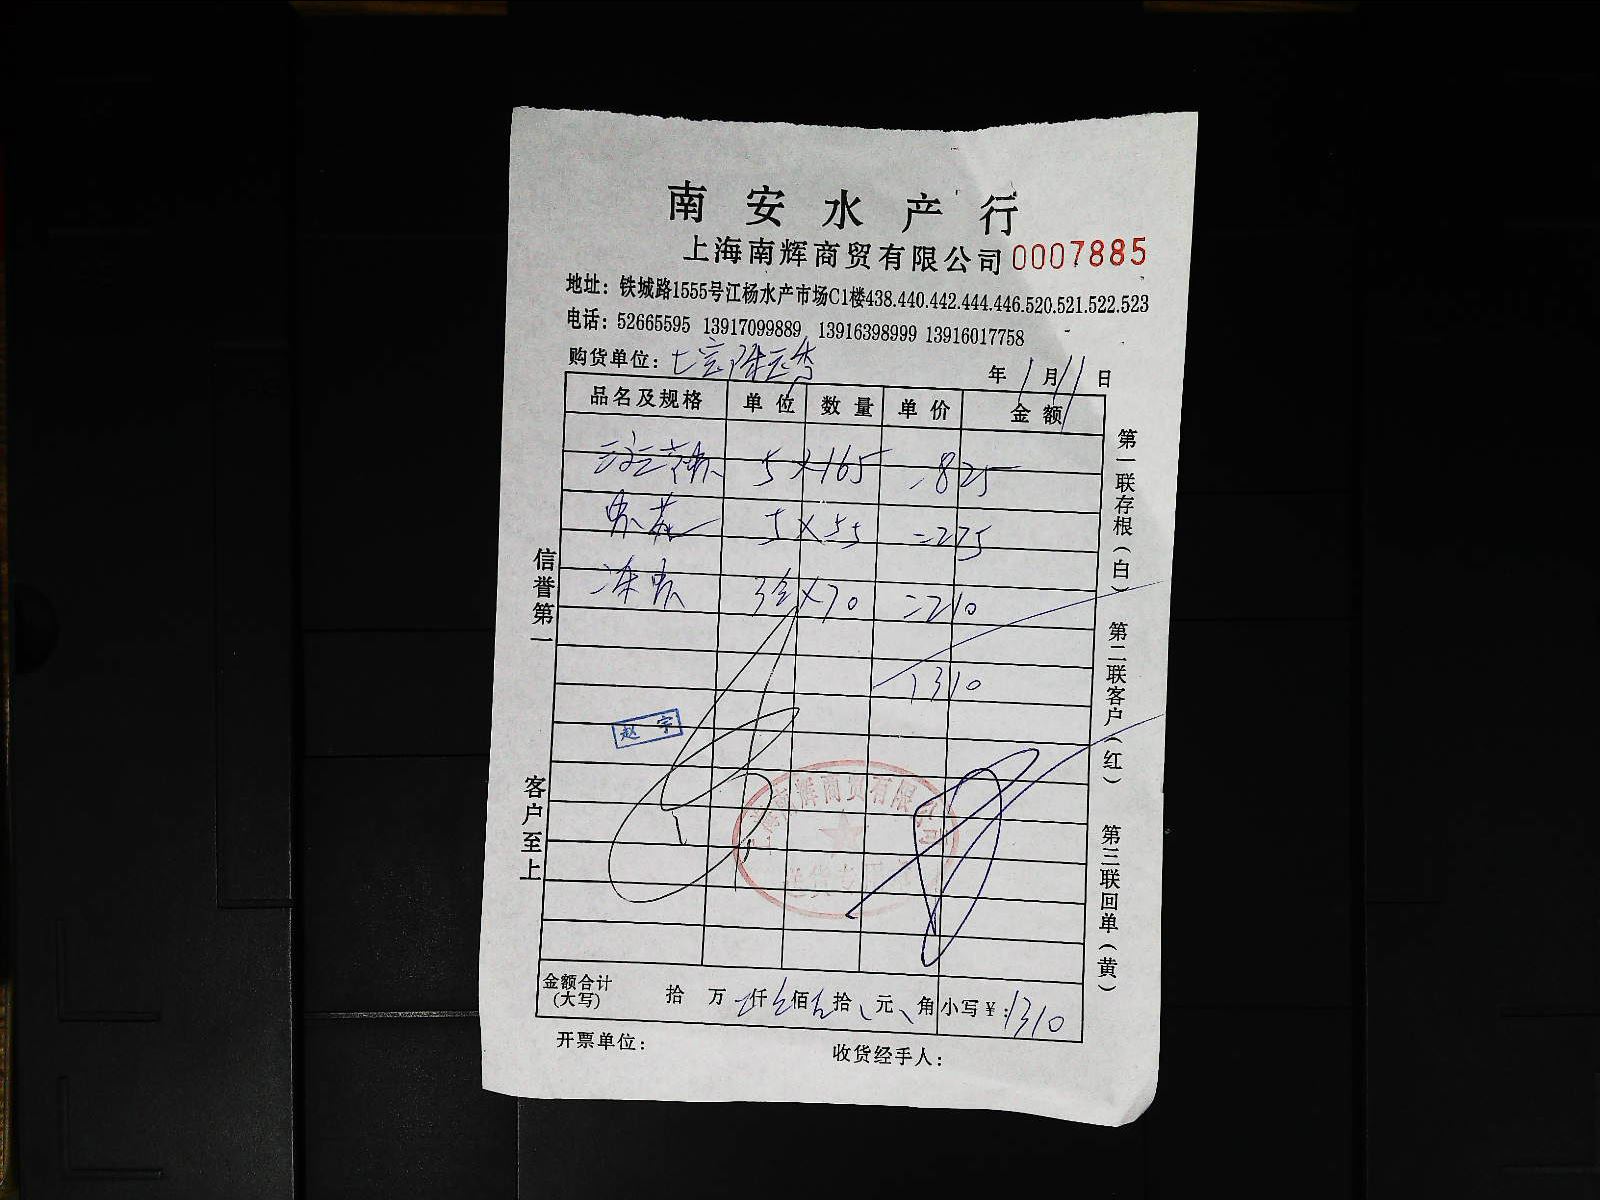 南安水产行
上海南辉商贸有限公司 0007885
地址：铁城路1555号江杨水产市场C1楼438.440.442.444.446.520.521.522.523
电话：52665595 13917099889 13916398999 13916017758
购货单位：七宝陈 年1月11日
品名及规格 单位 数量 单价 金额
5×165 =825
5×55 =275
×70 =210
1310
赵宇
辉商贸有限公司
信誉第一
客户至上
第一联存根（白） 第二联客户（红） 第三联回单（黄）
金额合计（大写） 拾 万 仟 佰 拾 元 角 小写￥：1310
开票单位： 收货经手人：